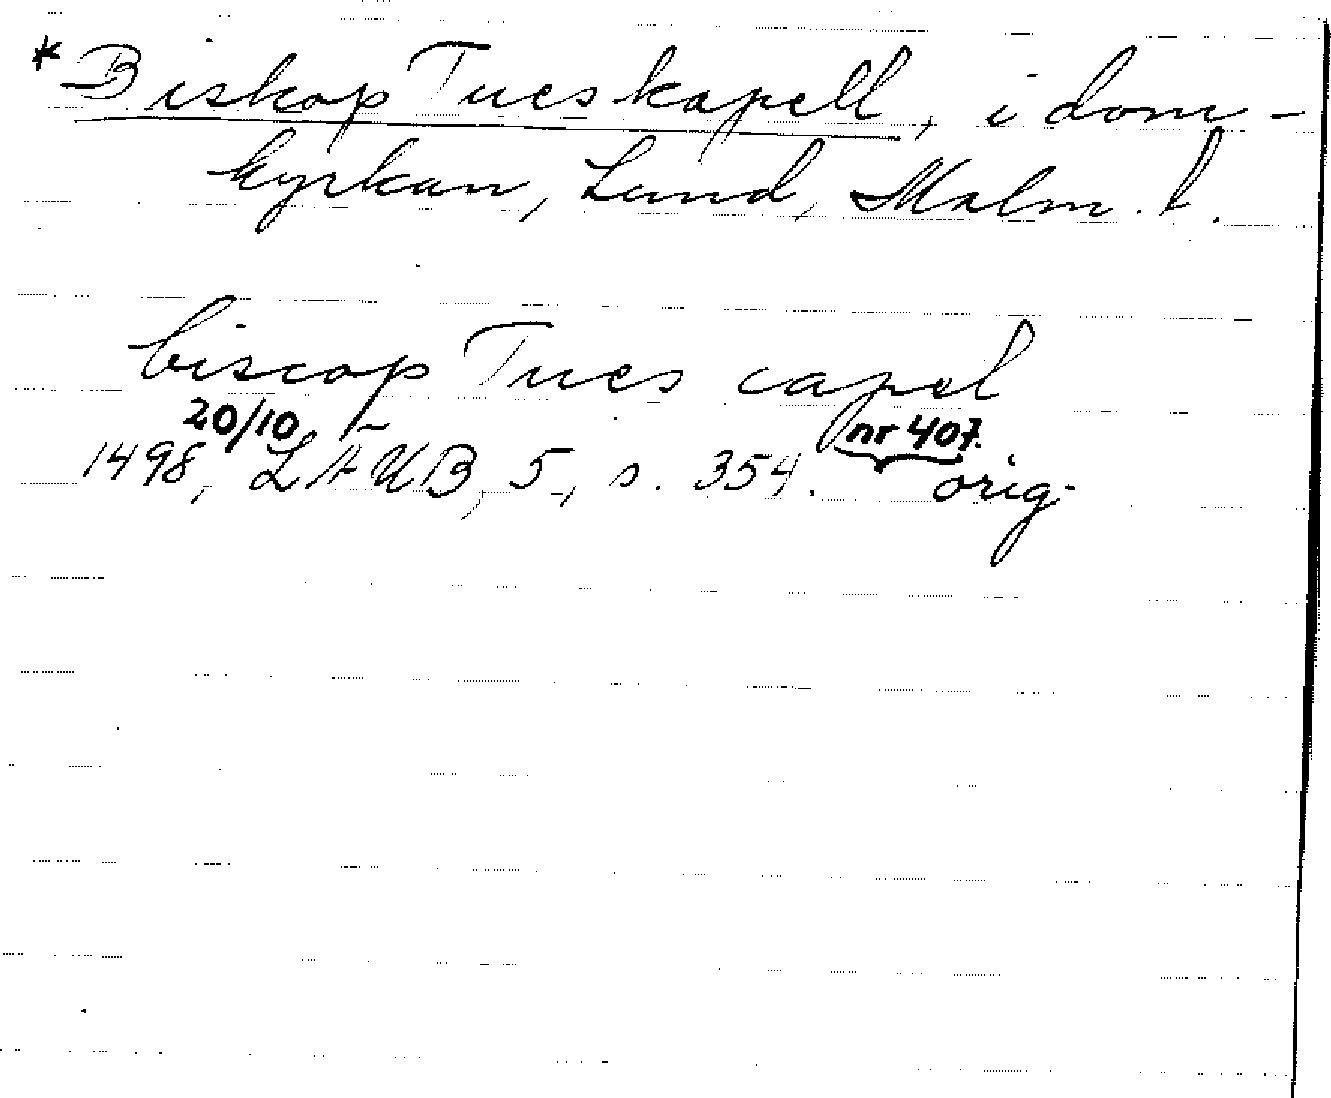 * Biskop Tues kapell, i dom-
kyrkan, Lund, Malm. l.
biscop Tues capel
20/10 nr 407.
1498, LÄUB, 5, s. 354. orig.